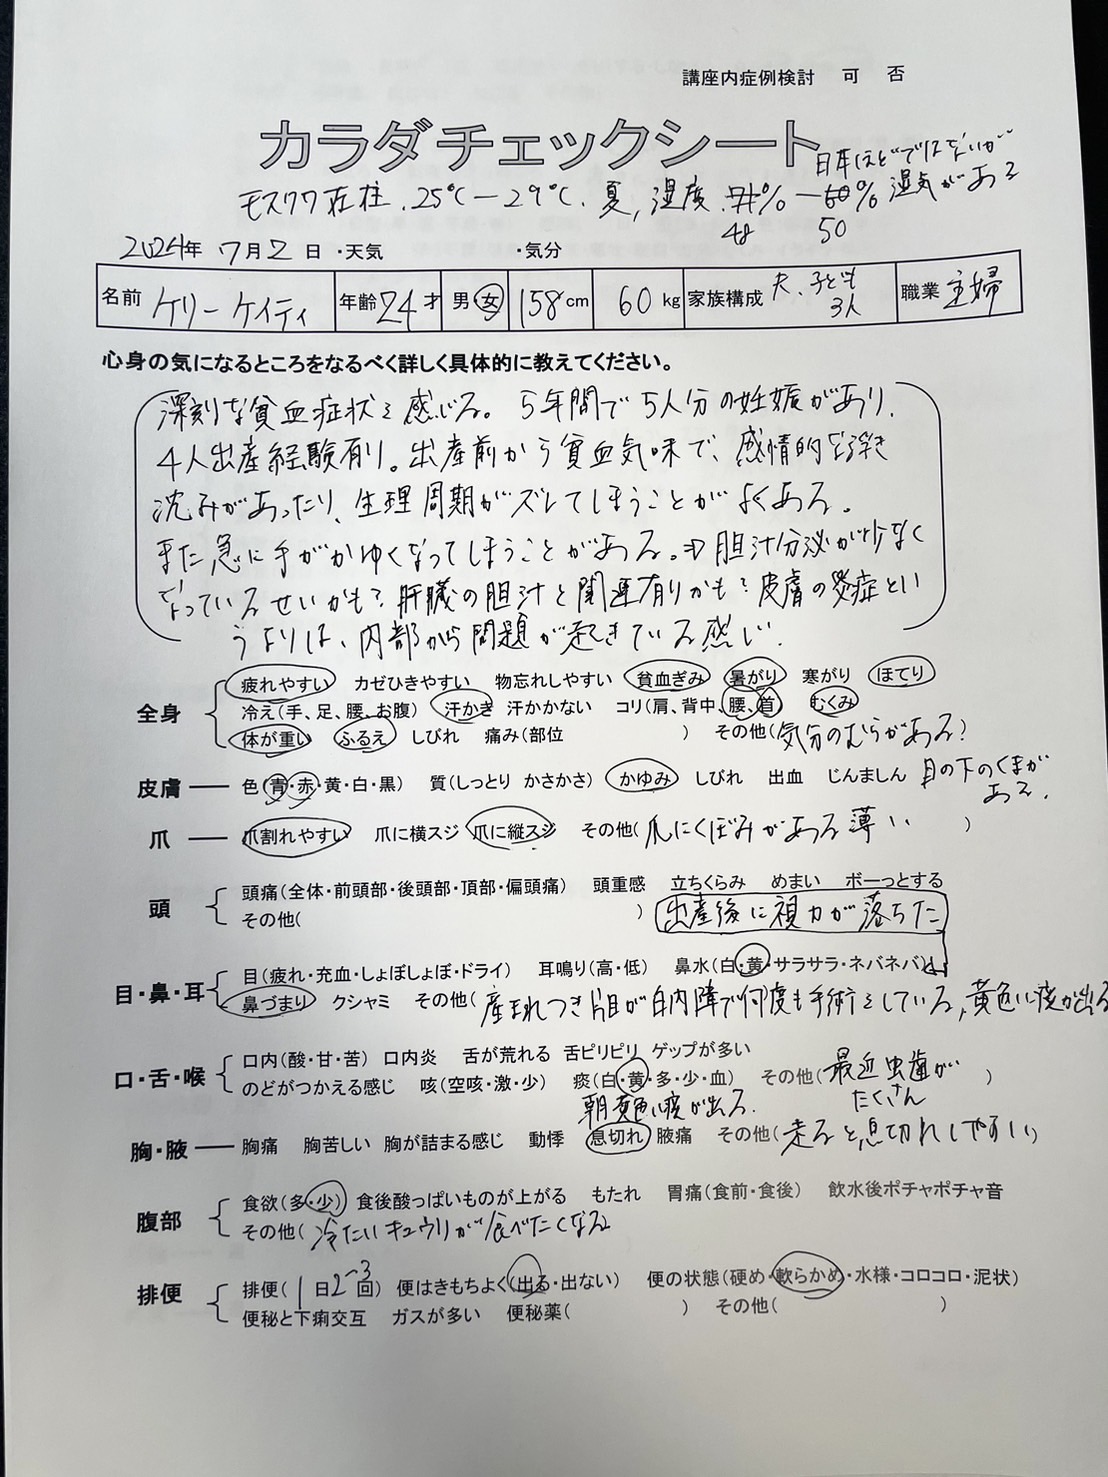 講座内症例検討 可 否
カラダチェックシート
日本ほどではないが
モスクワ在住.25℃ー29℃.夏,湿度.71%ー60%湿気がある
48 50
2024年 7月2日・天気 ・気分
名前 ケリー ケイティ 年齢24才 男 女 158cm 60kg 家族構成 夫、子ども3人 職業 主婦
心身の気になるところをなるべく詳しく具体的に教えてください。
深刻な貧血症状を感じる。5年間で5人分の妊娠があり、
4人出産経験有り。出産前から貧血気味で、感情的な浮き
沈みがあったり、生理周期がズレてしまうことがよくある。
また急に手がかゆくなってしまうことがある。⇒胆汁分泌が少なく
なっているせいかも?肝臓の胆汁と関連有りかも?皮膚の炎症とい
うよりは、内部から問題が起きている感じ.
疲れやすい カゼひきやすい 物忘れしやすい 貧血ぎみ 暑がり 寒がり ほてり
全身 冷え(手、足、腰、お腹) 汗かき 汗かかない コリ(肩、背中、腰、首) むくみ
体が重い ふるえ しびれ 痛み(部位 ) その他(気分のむらがある?
皮膚 色(青・赤・黄・白・黒) 質(しっとり かさかさ) かゆみ しびれ 出血 じんましん 目の下のくまが
ある.
爪 爪割れやすい 爪に横スジ 爪に縦スジ その他(爪にくぼみがある薄い )
頭 頭痛(全体・前頭部・後頭部・頂部・偏頭痛) 頭重感 立ちくらみ めまい ボーっとする
その他( ) 出産後に視力が落ちた
目・鼻・耳 目(疲れ・充血・しょぼしょぼ・ドライ) 耳鳴り(高・低) 鼻水(白・黄・サラサラ・ネバネバ)
鼻づまり クシャミ その他(産まれつき片目が白内障で何度も手術をしている,黄色い痰が出る
口・舌・喉 口内(酸・甘・苦) 口内炎 舌が荒れる 舌ピリピリ ゲップが多い
のどがつかえる感じ 咳(空咳・激・少) 痰(白・黄・多・少・血) その他(最近虫歯が )
朝黄色い痰が出る. たくさん
胸・腋 胸痛 胸苦しい 胸が詰まる感じ 動悸 息切れ 腋痛 その他(走ると息切れしやすい)
腹部 食欲(多・少) 食後酸っぱいものが上がる もたれ 胃痛(食前・食後) 飲水後ポチャポチャ音
その他(冷たいキュウリが食べたくなる
排便 排便(1日2~3回) 便はきもちよく(出る・出ない) 便の状態(硬め・軟らかめ・水様・コロコロ・泥状)
便秘と下痢交互 ガスが多い 便秘薬( ) その他( )